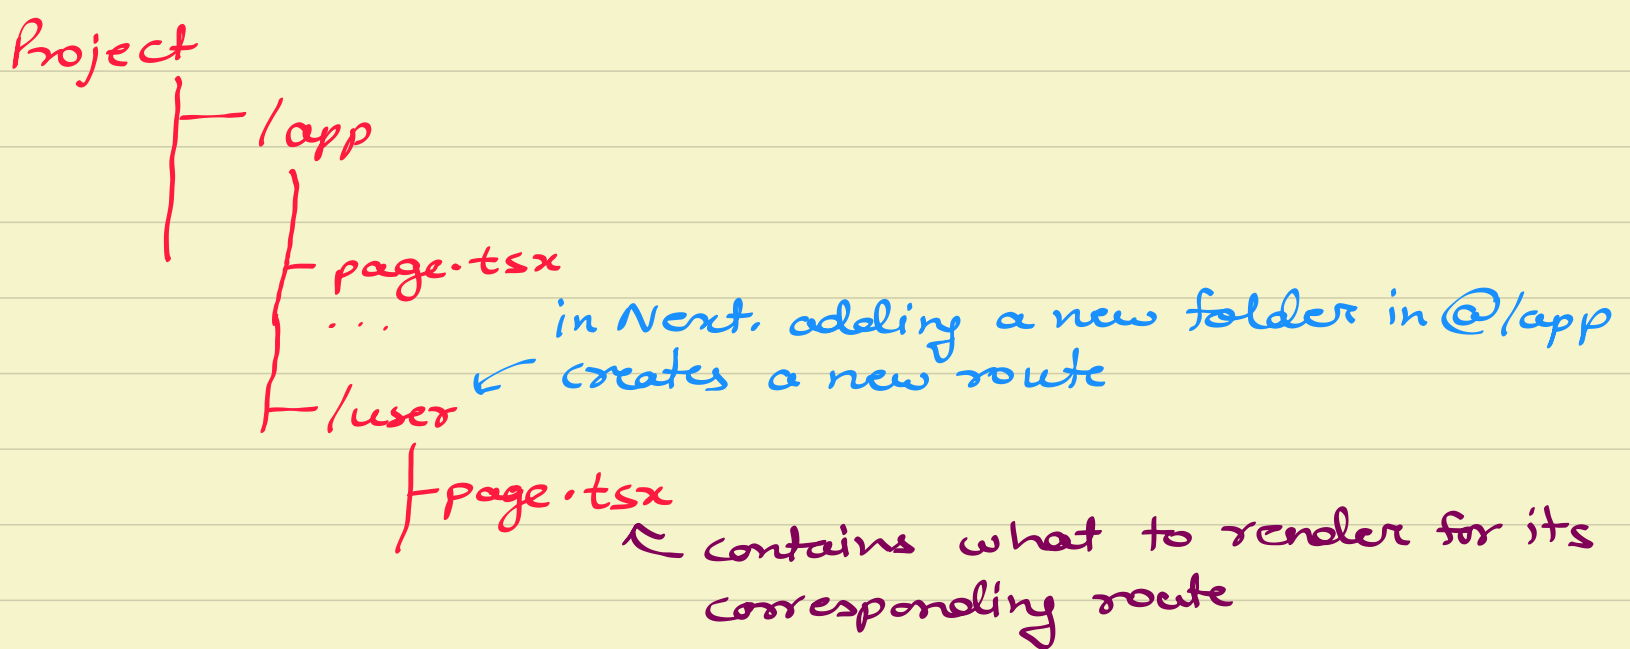 Project
/app
page.tsx
...
in Next. adding a new folder in @/app
creates a new route
/user
page.tsx
contains what to render for its
corresponding route